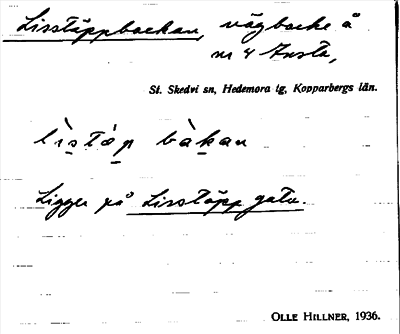 Lisstäppbackan, vägbacke å
nr 4 Insta,
St. Skedvi sn, Hedemora tg, Kopparbergs län.
lìstàp bàkan
Ligger på Lisstäppgata.
OLLE HILLNER, 1936.